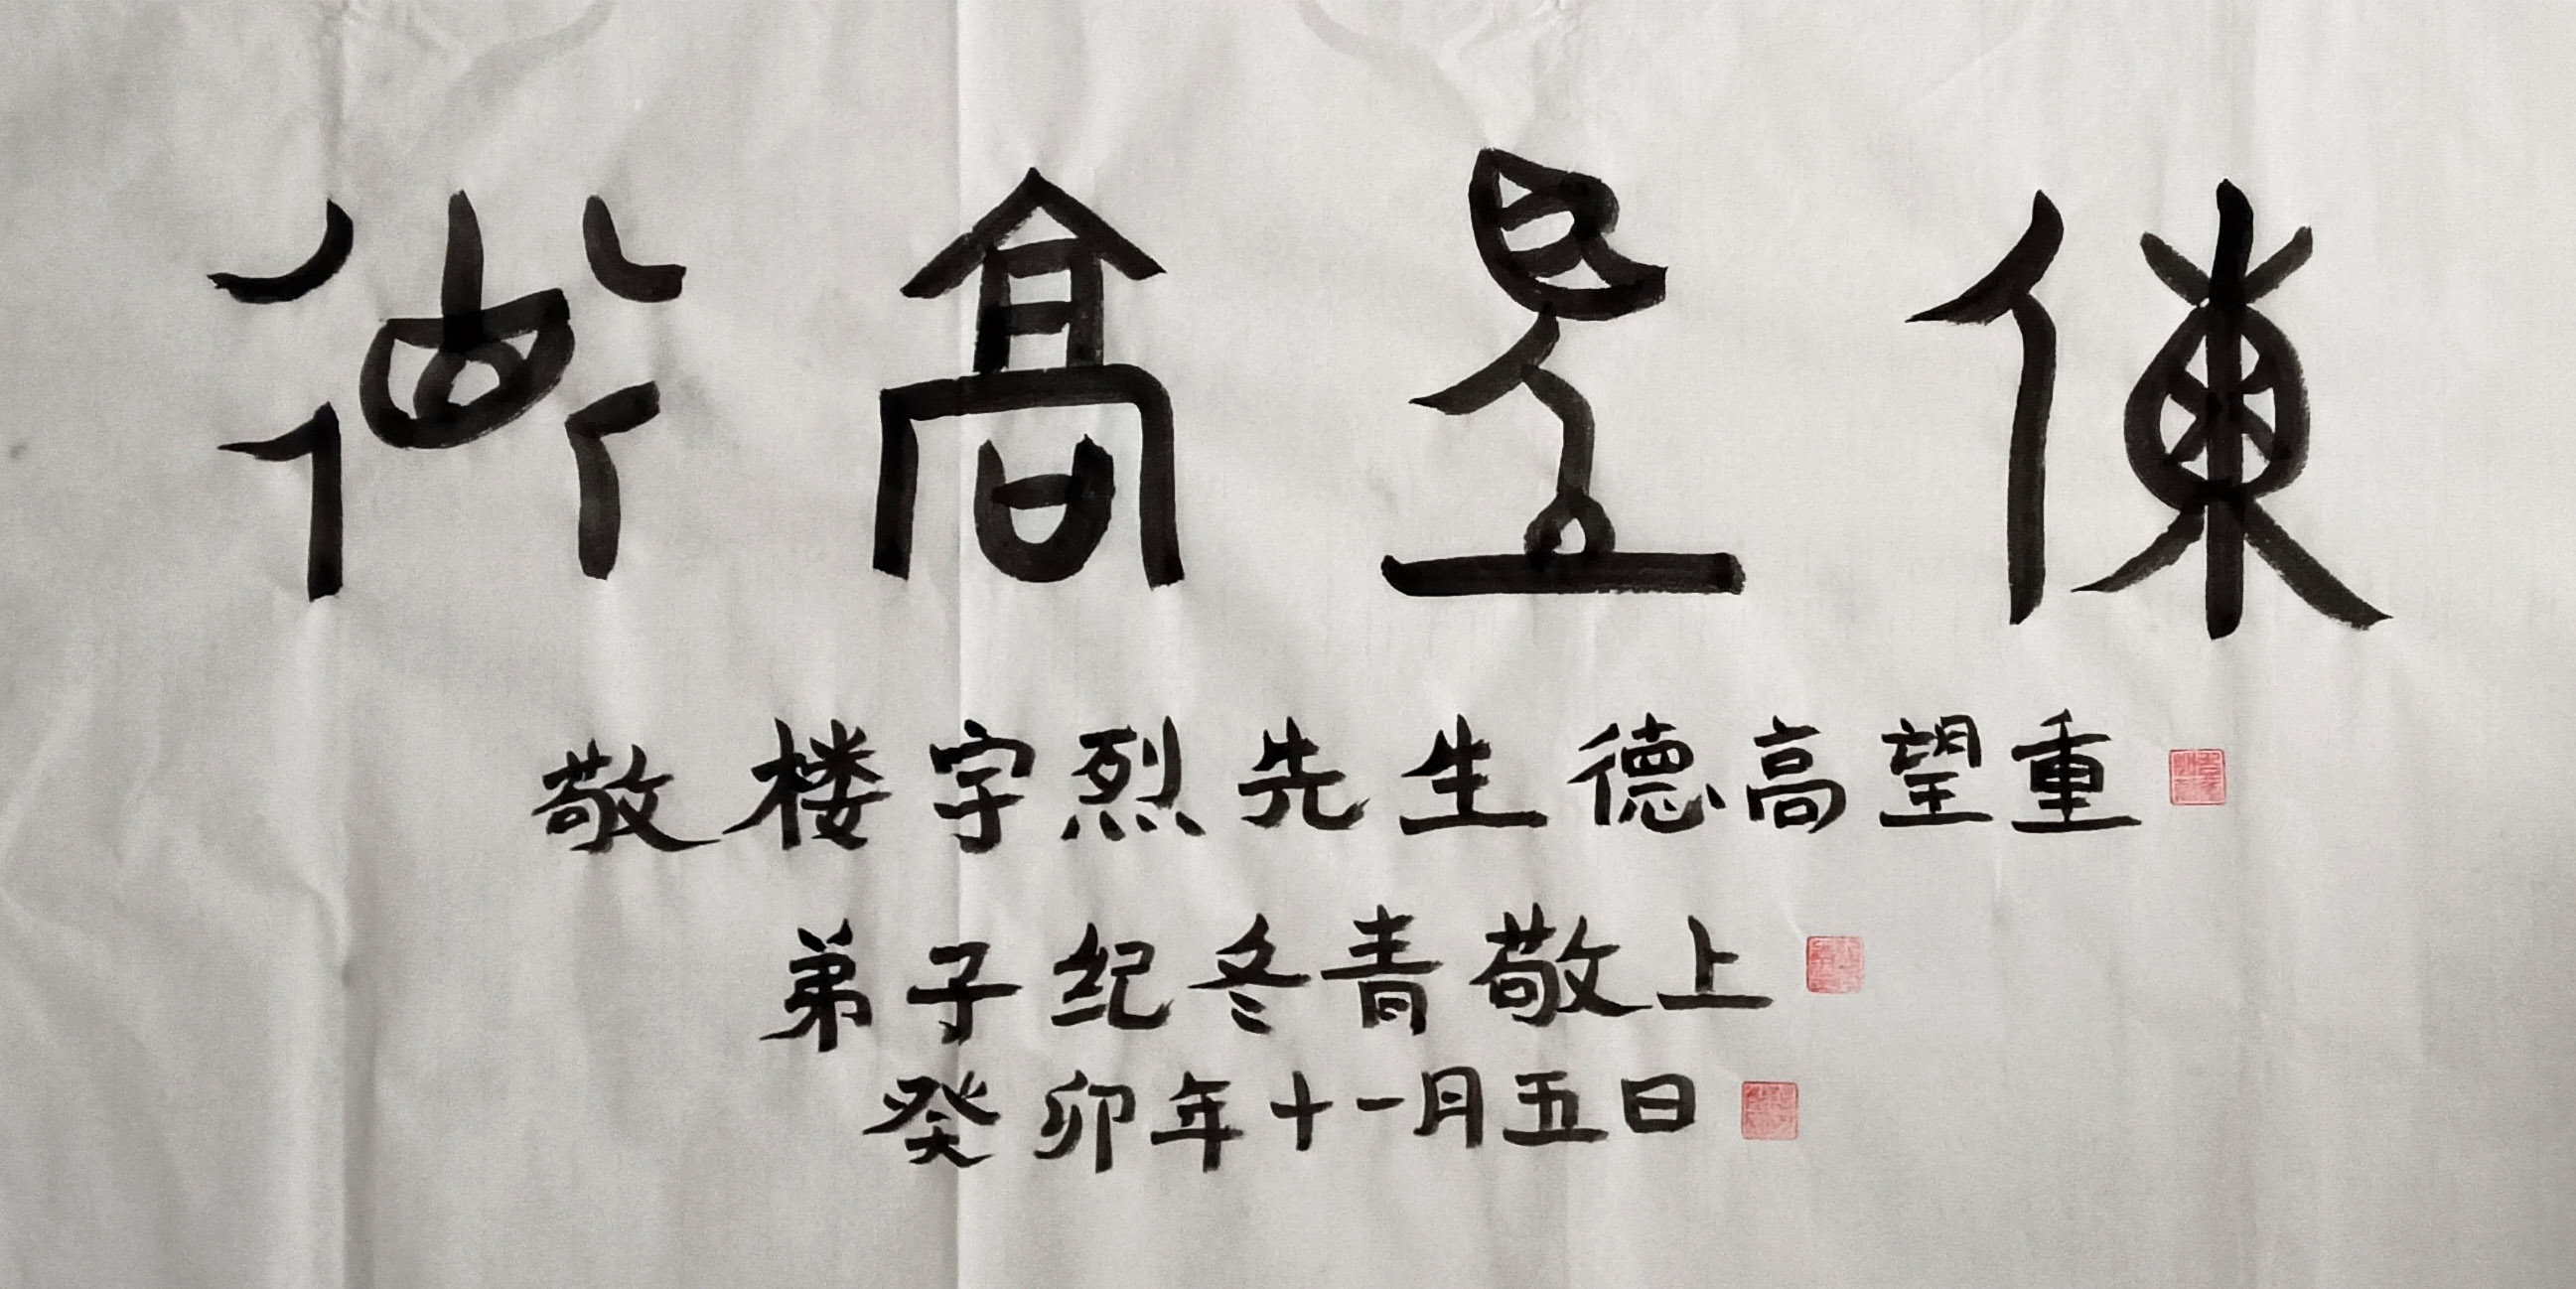 德高望重
敬楼宇烈先生德高望重
弟子纪冬青敬上
癸卯年十一月五日